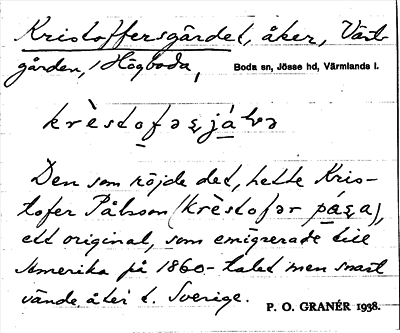 Kristoffersgärdet, åker, Väst-
gården, i Högboda, Boda sn, Jösse hd, Värmlands l.
krèstofəʂjálvə
Den som röjde det, hette Kris-
tofer Pålsson (krèstofər páʂa),
ett original, som emigrerade till
Amerika på 1860-talet men snart
vände åter t. Sverige.
P. O. GRANÉR 1938.